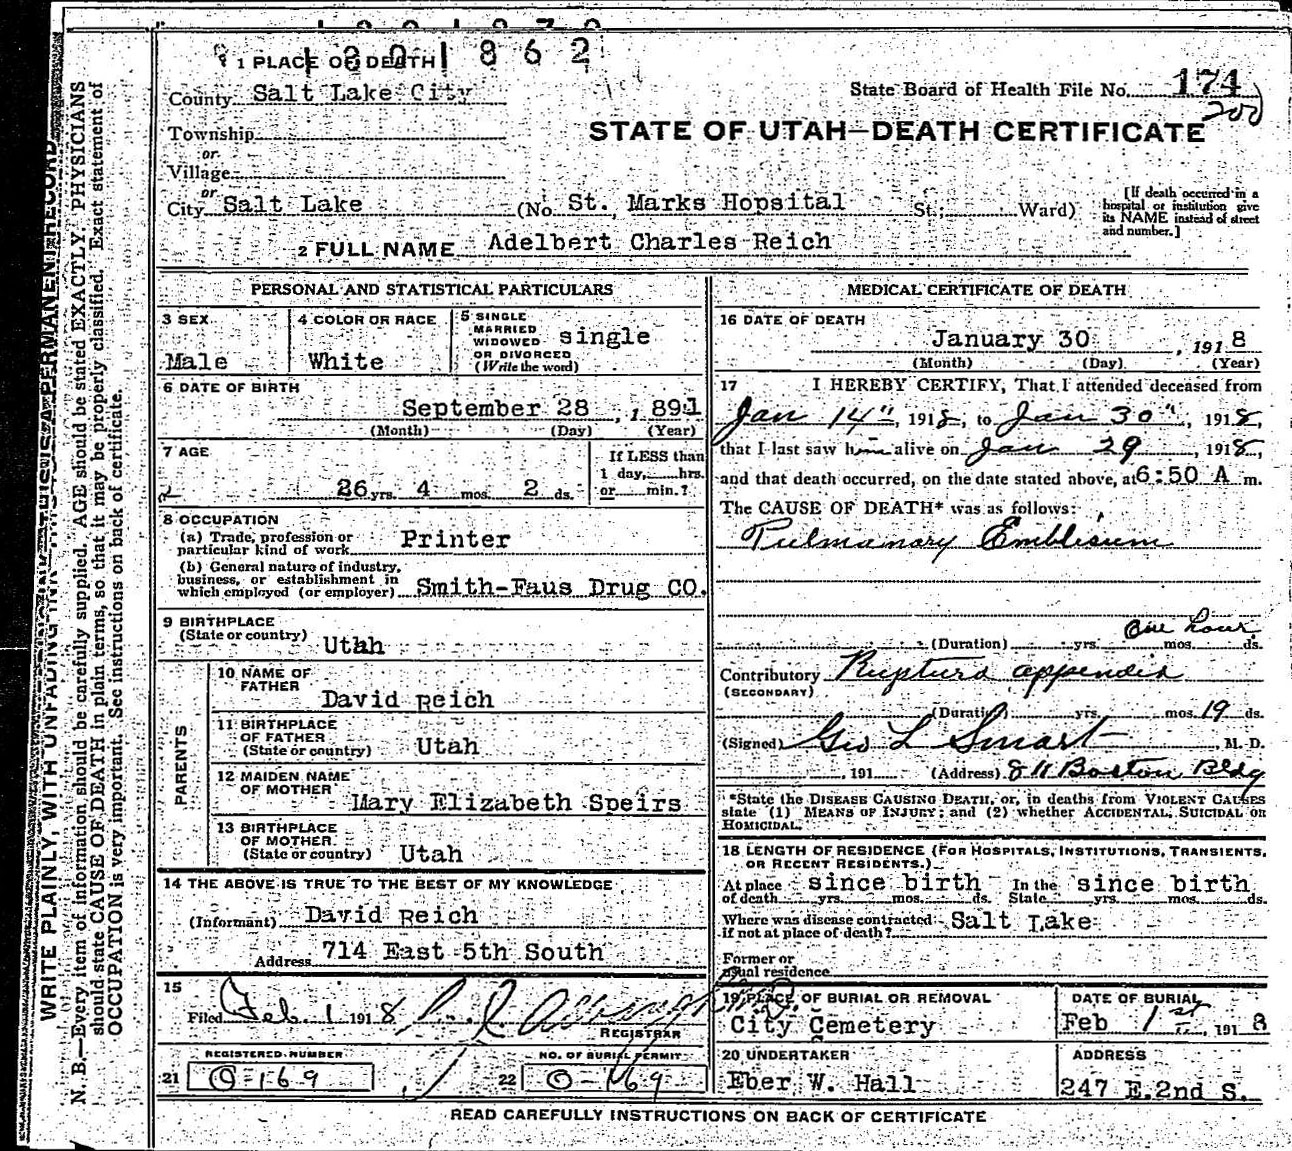 1301862
1 PLACE OF DEATH
County Salt Lake City
State Board of Health File No. 174
200
Township
or
Village
or
STATE OF UTAH—DEATH CERTIFICATE
City Salt Lake (No. St. Marks Hopsital St.; Ward)
[If death occurred in a
hospital or institution give
its NAME instead of street
and number.]
2 FULL NAME Adelbert Charles Reich
PERSONAL AND STATISTICAL PARTICULARS
3 SEX
Male
4 COLOR OR RACE
White
5 SINGLE
MARRIED
WIDOWED
OR DIVORCED
(Write the word)
single
6 DATE OF BIRTH
September 28, 1891
(Month) (Day) (Year)
7 AGE
26 yrs. 4 mos. 2 ds.
If LESS than
1 day, hrs.
or min.?
8 OCCUPATION
(a) Trade, profession or
particular kind of work Printer
(b) General nature of industry,
business, or establishment in
which employed (or employer) Smith-Faus Drug CO.
9 BIRTHPLACE
(State or country) Utah
PARENTS
10 NAME OF
FATHER
David Reich
11 BIRTHPLACE
OF FATHER
(State or country) Utah
12 MAIDEN NAME
OF MOTHER
Mary Elizabeth Speirs
13 BIRTHPLACE
OF MOTHER
(State or country) Utah
14 THE ABOVE IS TRUE TO THE BEST OF MY KNOWLEDGE
(Informant) David Reich
Address 714 East 5th South
15
Filed Feb. 1 1918
REGISTRAR
REGISTERED NUMBER
21 O-169
NO. OF BURIAL PERMIT
22 O-169
MEDICAL CERTIFICATE OF DEATH
16 DATE OF DEATH
January 30, 1918
(Month) (Day) (Year)
17 I HEREBY CERTIFY, That I attended deceased from
Jan 14", 1918, to Jan 30", 1918,
that I last saw him alive on Jan 29, 1918,
and that death occurred, on the date stated above, at 6:50 A m.
The CAUSE OF DEATH* was as follows:
Pulmanary Emblisum
One hour
(Duration) yrs. mos. ds.
Contributory Rupturd appendix
(SECONDARY)
(Duration) yrs. mos. 19 ds.
(Signed) Geo L Smart, M. D.
, 191 (Address) 811 Boston Bldg
*State the DISEASE CAUSING DEATH, or, in deaths from VIOLENT CAUSES
state (1) MEANS OF INJURY; and (2) whether ACCIDENTAL, SUICIDAL OR
HOMICIDAL.
18 LENGTH OF RESIDENCE (FOR HOSPITALS, INSTITUTIONS, TRANSIENTS,
OR RECENT RESIDENTS.)
At place since birth In the since birth
of death yrs. mos. ds. State yrs. mos. ds.
Where was disease contracted Salt Lake
if not at place of death?
Former or
usual residence
19 PLACE OF BURIAL OR REMOVAL
City Cemetery
DATE OF BURIAL
Feb 1st, 1918
20 UNDERTAKER
Eber W. Hall
ADDRESS
247 E.2nd S.
READ CAREFULLY INSTRUCTIONS ON BACK OF CERTIFICATE
WRITE PLAINLY, WITH UNFADING INK—THIS IS A PERMANENT RECORD
N. B.—Every item of information should be carefully supplied. AGE should be stated EXACTLY. PHYSICIANS
should state CAUSE OF DEATH in plain terms, so that it may be properly classified. Exact statement of
OCCUPATION is very important. See instructions on back of certificate.